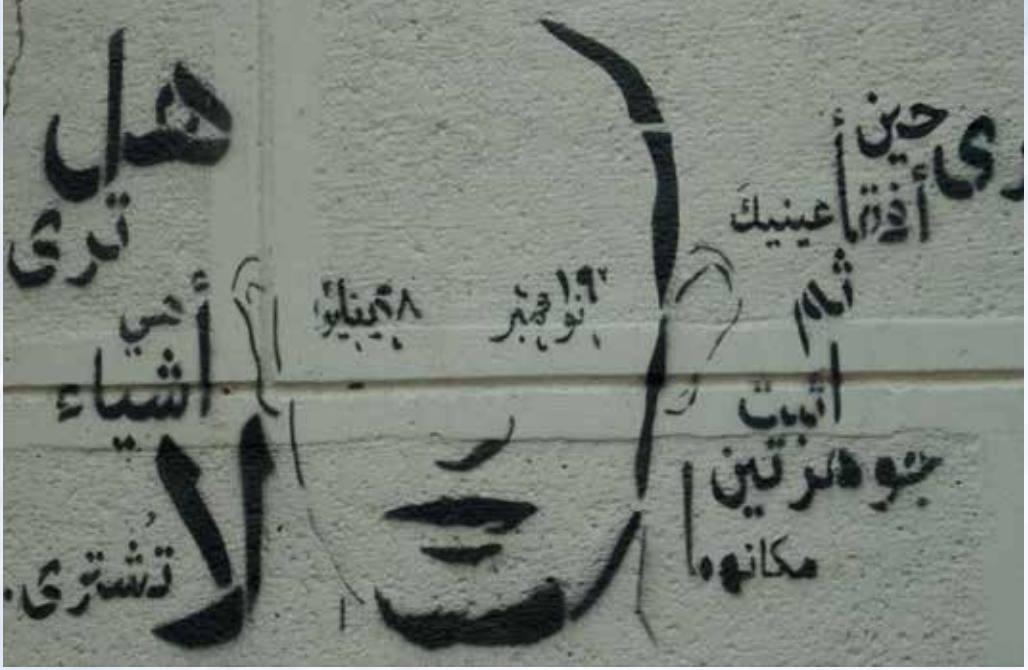 حين
أفقأ عينيكَ
ثم
أثبت
جوهرتين
مكانهما
١٩ نوفمبر
٢٨ يناير
هل
ترى
هي
أشياء
لا
تُشترى..